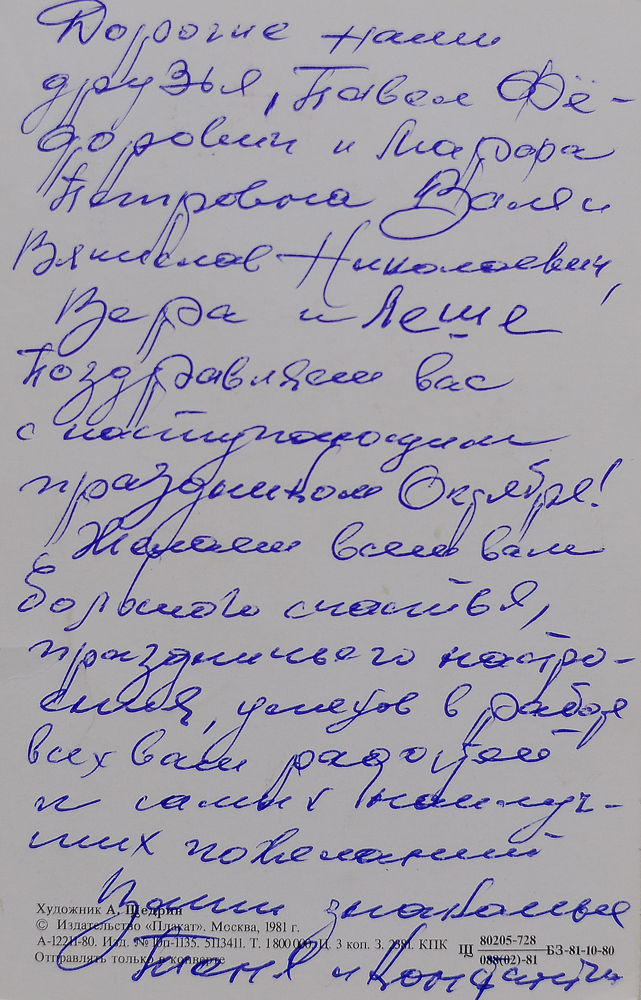 Дорогие наши
друзья, Павел Фё-
дорович и Мавра
Петровна Валя и
Вячислав Николаевич,
Вера и Леше
Поздравляем вас
с наступающим
праздником Октября!
Желаем всем вам
большого счастья,
праздничного настро-
ения, успехов в работе
всех вам радостей
и самых наилуч-
ших пожеланий
Ваши знакомые
Тоня и Константин
Художник А. Щедрин
© Издательство «Плакат». Москва, 1981 г.
А-12211-80. Изд. № 10п-1135. 5П3411. Т. 1 800 000. И. 3 коп. З. 2381. КПК
Отправлять только в конверте
Щ 80205-728 БЗ-81-10-80
088(02)-81